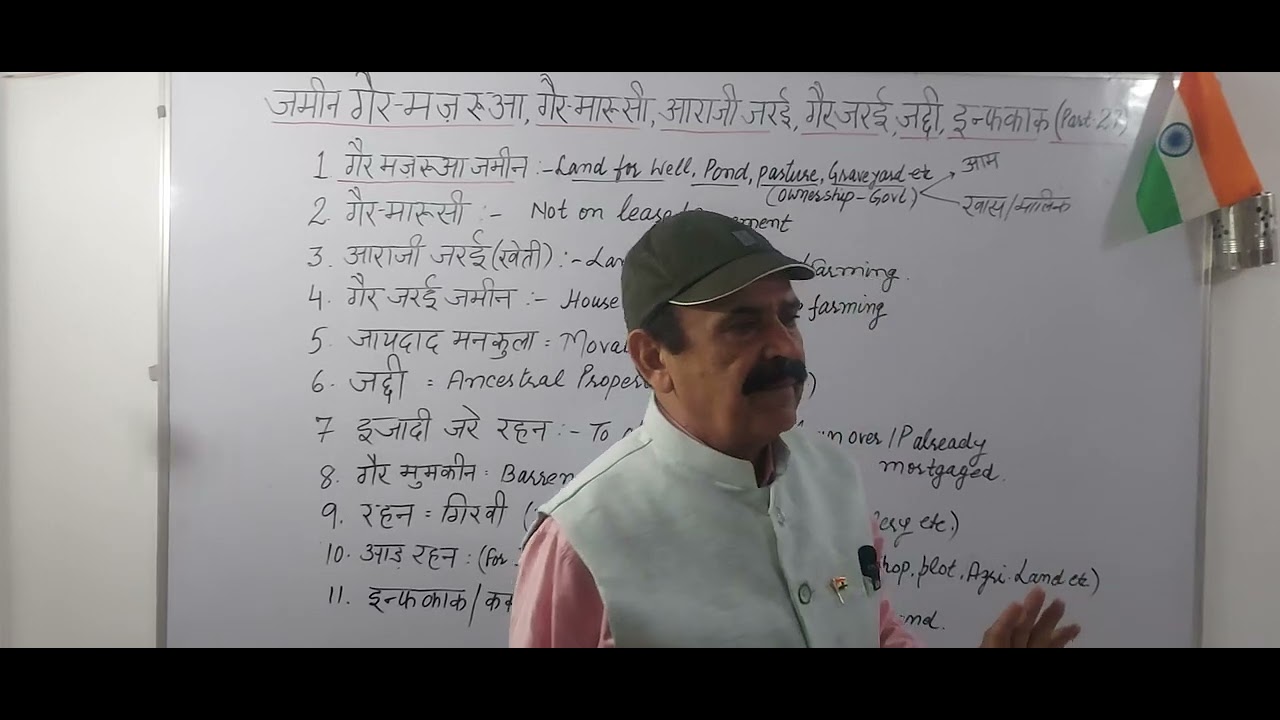 जमीन गैर-मज़रूआ, गैर-मारूसी, आराजी जरई, गैर जरई, जद्दी, इन्फकाक (Part 27)
1 गैर मज़रूआ जमीन :- Land for Well, Pond, pasture, Graveyard etc
(ownership - Govt)
आम
खास/मालिक
2. गैर-मारूसी :- Not on lease
3. आराजी जरई (खेती) :- farming.
4. गैर जरई जमीन :- House farming
5. जायदाद मनकुला =
6. जद्दी = Ancestral
7 इजादी जरे रहन :- To over / P already
mortgaged.
8. गैर मुमकीन : Barren
9. रहन = गिरवी ( etc.)
10. आड़ रहन : (for plot, Agri. Land etc)
11. इन्फकाक /